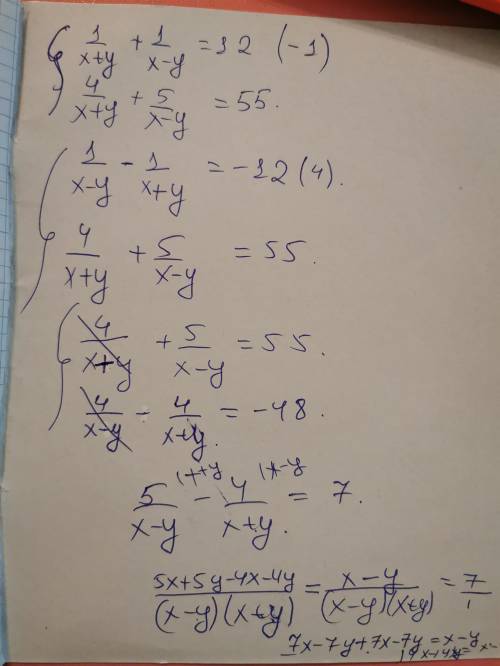 1/(x+y) + 1/(x-y) = 12 (-1)
4/(x+y) + 5/(x-y) = 55.
1/(x-y) - 1/(x+y) = -12 (4).
4/(x+y) + 5/(x-y) = 55.
4/(x+y) + 5/(x-y) = 55.
4/(x-y) - 4/(x+y) = -48.
5/(x-y) - 4/(x+y) = 7.
(5x+5y-4x-4y)/((x-y)(x+y)) = (x-y)/((x-y)(x+y)) = 7/1
7x-7y+7x-7y = x-y